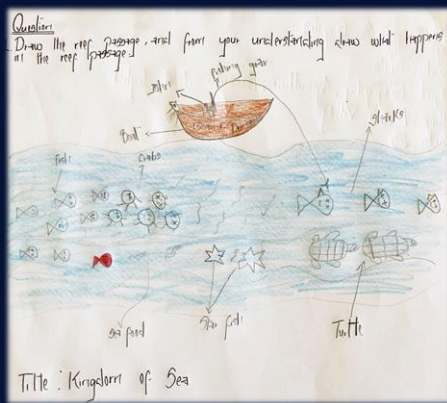 Question
Draw the reef passage, and from your understanding draw what happens
in the reef passage.
John
fishing gear
Boat
Sharks
Fish
Crabs
Sea food
Star fish
Turtle
Title : Kingdom of Sea